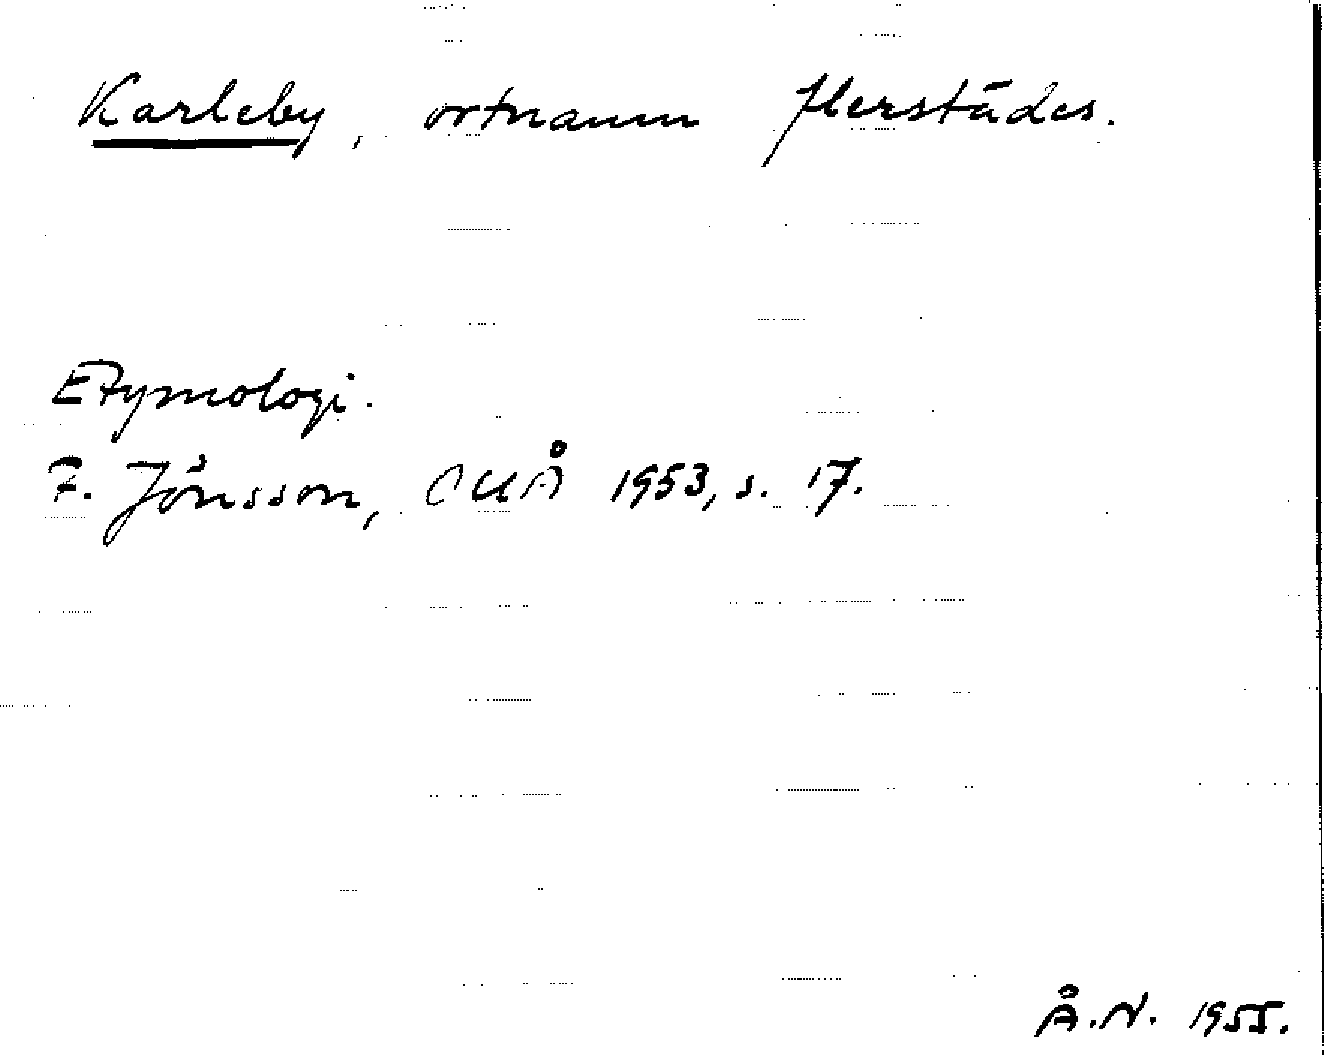 Karleby, ortnamn flerstädes.
Etymologi.
F. Jónsson, OUÅ 1953, s. 17.
Å.N. 1955.